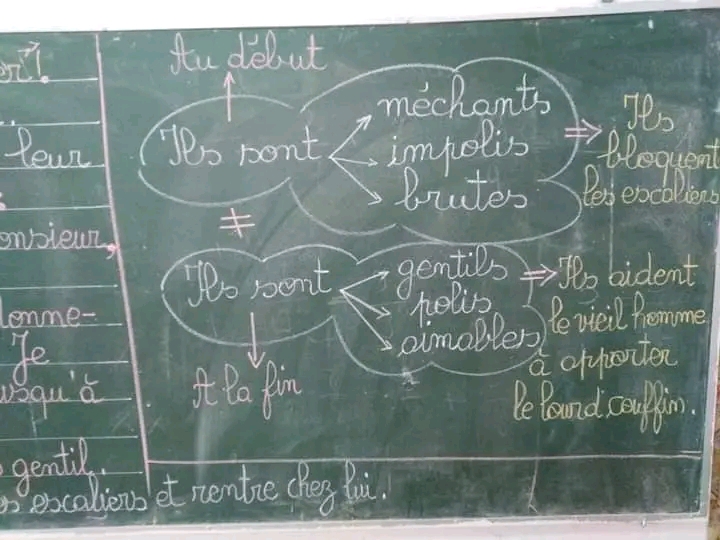 er"!
leur
onsieur,
donne-
Je
usqu'à
gentil.
es escaliers et rentre chez lui.
Au début
Ils sont
méchants
impolis
brutes
⇒ Ils
bloquent
les escaliers
≠
Ils sont
gentils
polis
aimables
⇒ Ils aident
le vieil homme
à apporter
le lourd couffin.
A la fin